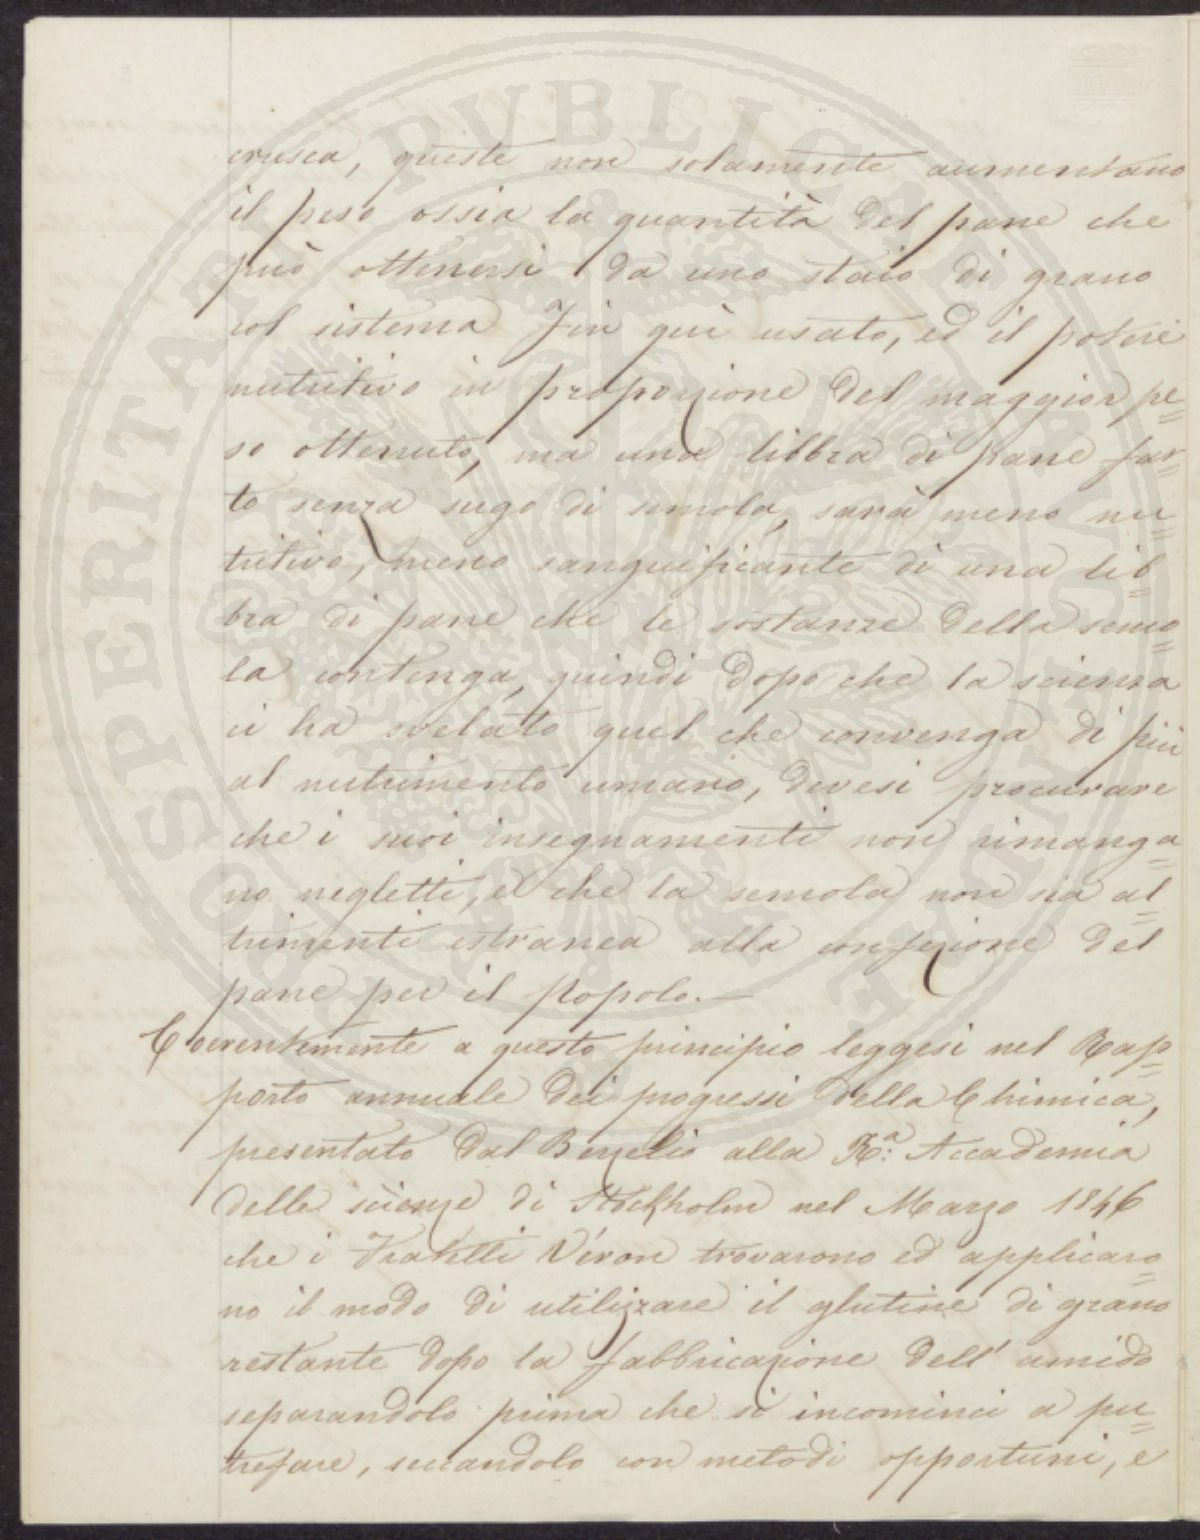 crusca, queste non solamente aumentano
il peso ossia la quantità del pane che
può ottenersi da uno staio di grano
col sistema fin quì usato, ed il potere
nutritivo in proporzione del maggior pe=
so ottenuto, ma una libbra di pane fat=
to senza sugo di semola, sarà meno nu=
tritivo, meno sanguificante di una lib=
bra di pane che le sostanze della semo=
la contenga, quindi dopo che la scienza
ci ha svelato quel che convenga di più
al nutrimento umano, devesi procurare
che i suoi insegnamenti non rimanga=
no negletti, e che la semola non sia al=
trimenti estranea alla confezione del
pane per il popolo.—
Coerentemente a questo principio leggesi nel Rap=
porto annuale dei progressi della Chimica,
presentato dal Berzelio alla R.ª Accademia
delle scienze di Stockholm nel Marzo 1846
che i Fratelli Véron trovarono ed applicaro=
no il modo di utilizzare il glutine di grano
restante dopo la fabbricazione dell' amido
separandolo prima che si incominci a pu=
trefare, seccandolo con metodi opportuni, e
PROSPERITATI PUBLICAE AUGENDAE